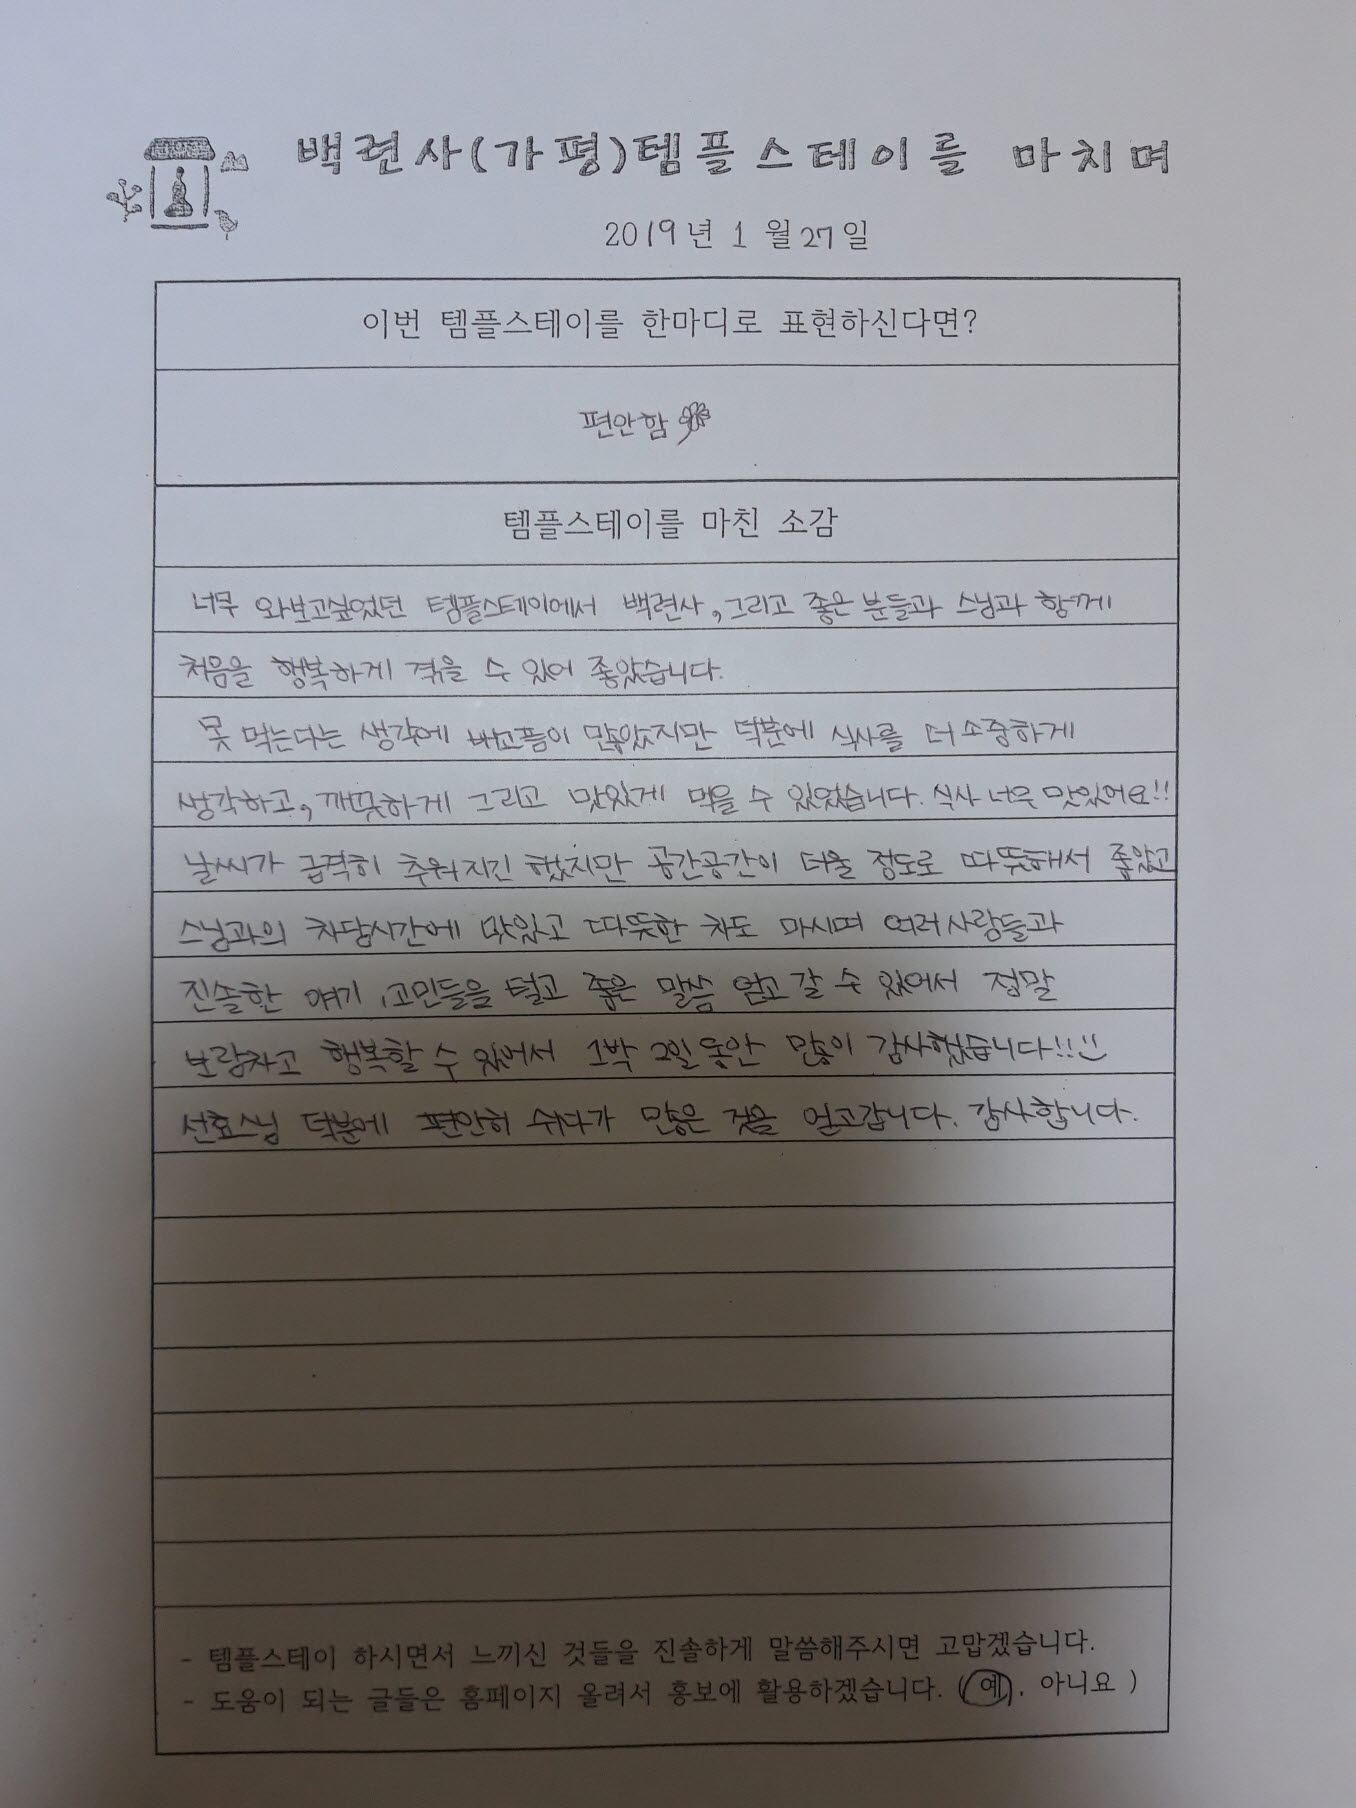 백련사(가평)템플스테이를 마치며
2019년 1월 27일
이번 템플스테이를 한마디로 표현하신다면?
편안함
템플스테이를 마친 소감
너무 와보고싶었던 템플스테이에서 백련사, 그리고 좋은 분들과 스님과 함께
처음을 행복하게 겪을 수 있어 좋았습니다.
못 먹는다는 생각에 배고픔이 많았지만 덕분에 식사를 더 소중하게
생각하고, 깨끗하게 그리고 맛있게 먹을 수 있었습니다. 식사 너무 맛있어요!!
날씨가 급격히 추워지긴 했지만 공간공간이 더울 정도로 따뜻해서 좋았고
스님과의 차담시간에 맛있고 따뜻한 차도 마시며 여러사람들과
진솔한 얘기, 고민들을 털고 좋은 말씀 얻고 갈 수 있어서 정말
보람차고 행복할 수 있어서 1박 2일 동안 많이 감사했습니다!!
선효스님 덕분에 편안히 쉬다가 많은 것을 얻고갑니다. 감사합니다.
- 템플스테이 하시면서 느끼신 것들을 진솔하게 말씀해주시면 고맙겠습니다.
- 도움이 되는 글들은 홈페이지 올려서 홍보에 활용하겠습니다. (예, 아니요)